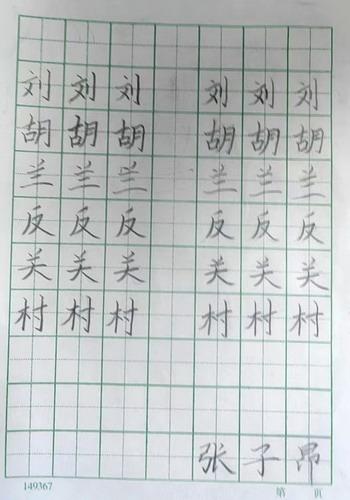 刘刘刘 刘刘刘
胡胡胡 胡胡胡
兰兰兰 兰兰兰
反反反 反反反
关关关 关关关
村村村 村村村
张子昂
149367 第 页